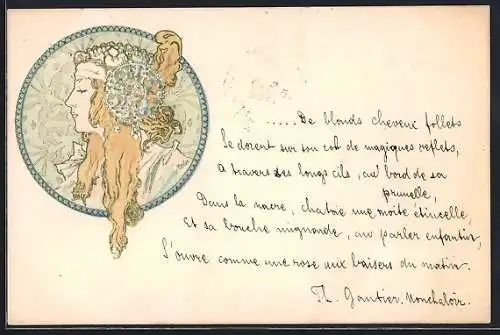 ..... De blonds cheveux follets
Se dorent sur son col de magiques reflets,
A travers ses longs cils, au bord de sa
prunelle,
Dans la nacre, chatoie une moite étincelle,
Et sa bouche mignarde, au parler enfantin,
S'ouvre comme une rose aux baisers du matin.
Th. Gautier. Nonchaloir.